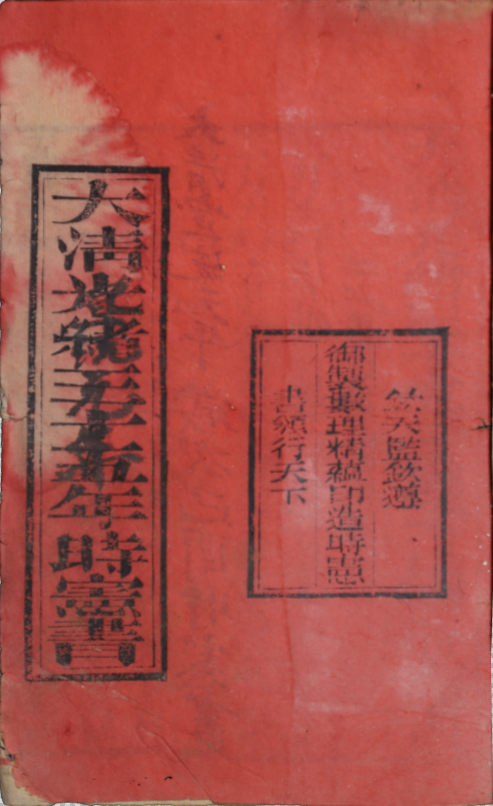 欽天監欽遵
御製數理精蘊印造時憲
書頒行天下
大清光緒三十五年時憲書